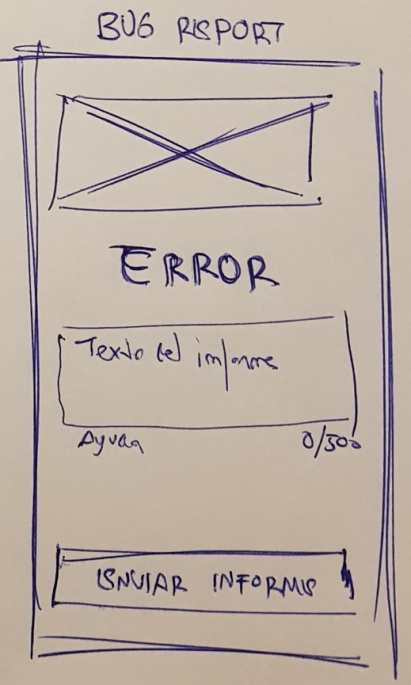 BUG REPORT
ERROR
Texto del informe
Ayuda 0/300
ENVIAR INFORME